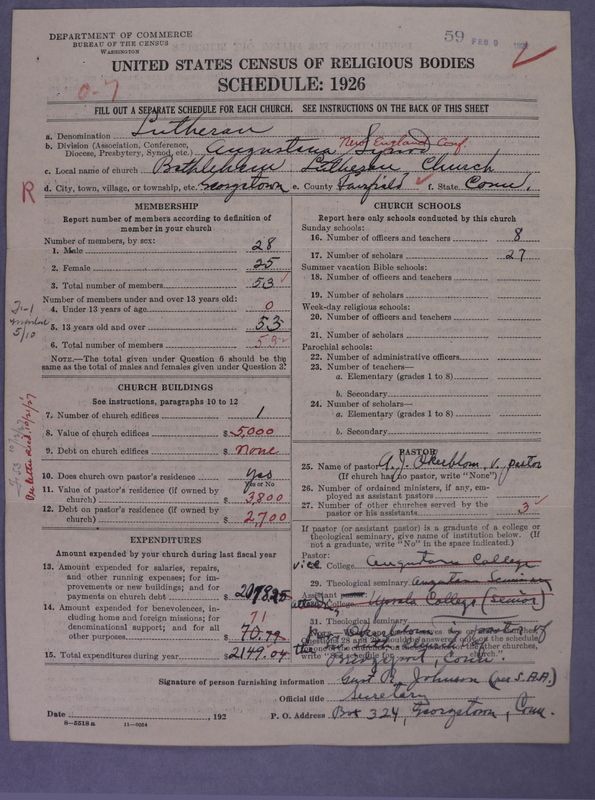 DEPARTMENT OF COMMERCE
BUREAU OF THE CENSUS
WASHINGTON
59 FEB 9
UNITED STATES CENSUS OF RELIGIOUS BODIES
SCHEDULE: 1926
0-7
FILL OUT A SEPARATE SCHEDULE FOR EACH CHURCH. SEE INSTRUCTIONS ON THE BACK OF THIS SHEET
a. Denomination Lutheran
b. Division (Association, Conference, Diocese, Presbytery, Synod, etc.) Augustana Synod New England Conf.
c. Local name of church Bethlehem Lutheran Church
d. City, town, village, or township, etc. Georgetown e. County Fairfield f. State Conn.
R
MEMBERSHIP
Report number of members according to definition of member in your church
Number of members, by sex:
1. Male 28
2. Female 25
3. Total number of members 53
Number of members under and over 13 years old:
4. Under 13 years of age 0
5. 13 years old and over 53
6. Total number of members 53
NOTE.—The total given under Question 6 should be the same as the total of males and females given under Question 3.
5/10
CHURCH BUILDINGS
See instructions, paragraphs 10 to 12
7. Number of church edifices 1
8. Value of church edifices $ 5,000
9. Debt on church edifices $ none
10. Does church own pastor's residence yes
Yes or No
11. Value of pastor's residence (if owned by church) $ 3800
12. Debt on pastor's residence (if owned by church) $ 2,700
EXPENDITURES
Amount expended by your church during last fiscal year
13. Amount expended for salaries, repairs, and other running expenses; for improvements or new buildings; and for payments on church debt $ 2078.25
14. Amount expended for benevolences, including home and foreign missions; for denominational support; and for all other purposes $ 70.79
71
15. Total expenditures during year $ 2149.04
CHURCH SCHOOLS
Report here only schools conducted by this church
Sunday schools:
16. Number of officers and teachers 8
17. Number of scholars 27
Summer vacation Bible schools:
18. Number of officers and teachers
19. Number of scholars
Week-day religious schools:
20. Number of officers and teachers
21. Number of scholars
Parochial schools:
22. Number of administrative officers
23. Number of teachers—
a. Elementary (grades 1 to 8)
b. Secondary
24. Number of scholars—
a. Elementary (grades 1 to 8)
b. Secondary
PASTOR
25. Name of pastor A. J. Okerblom v. pastor
(If church has no pastor, write "None")
26. Number of ordained ministers, if any, employed as assistant pastors
27. Number of other churches served by the pastor or his assistants 3
If pastor (or assistant pastor) is a graduate of a college or theological seminary, give name of institution below. (If not a graduate, write "No" in the space indicated.)
Pastor:
vice College Augustana College
29. Theological seminary Augustana Seminary
Assistant
College Upsala College (senior)
31. Theological seminary
Rev. Okerblom is pastor of
the
Bridgeport, Conn.
Signature of person furnishing information Gust B. Johnson (rec S.A.A.)
Official title Secretary
Date , 192 P. O. Address Box 324, Georgetown, Conn.
8—5518a 11—9034